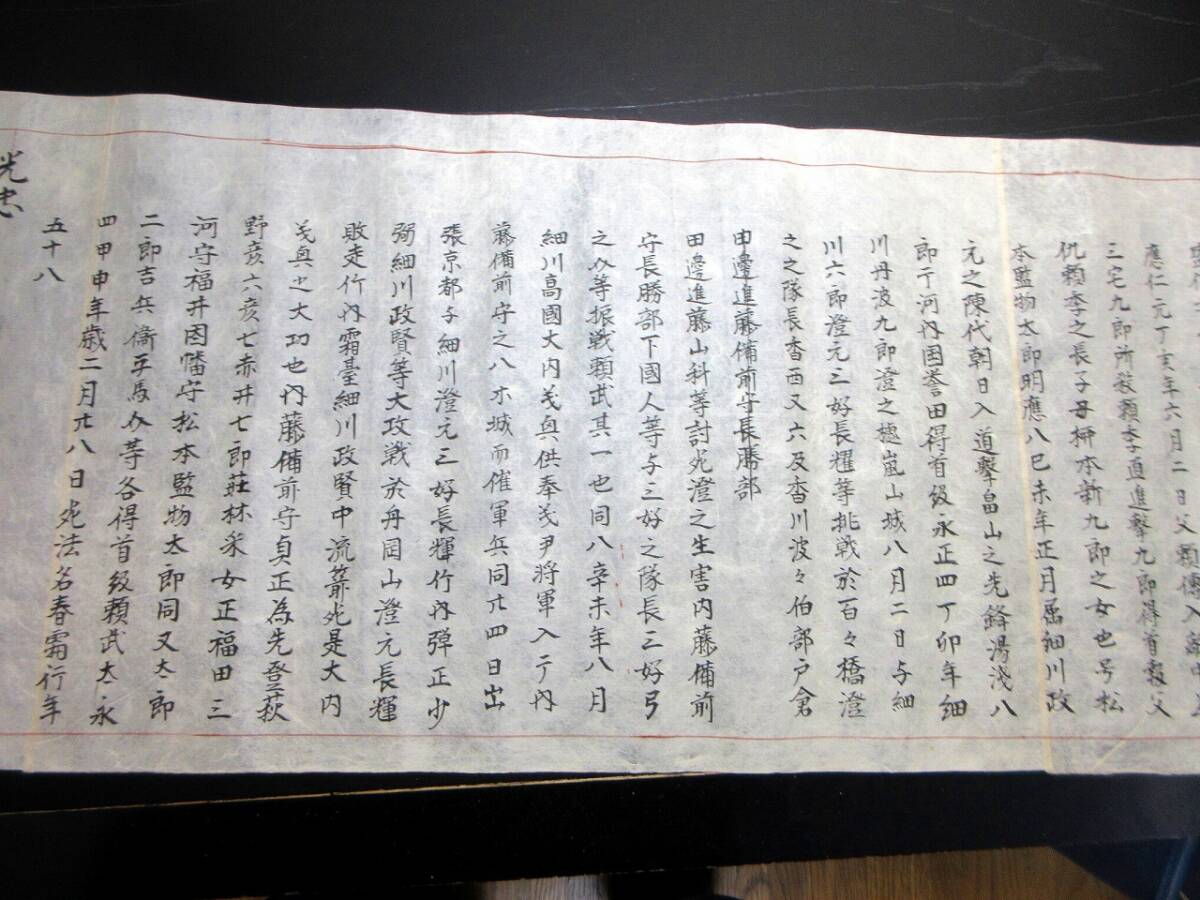 應仁元丁亥年六月二日父頼
三宅九郎所殺頼季直進撃九郎得首報父
仇頼季之長子母栁本新九郎之女也号松
本監物太郎明應八巳未年正月属細川政
元之陳代朝日入道撃畠山之先鋒湯浅八
郎于河内国誉田得首級永正四丁卯年細
川丹波九郎澄之摅嵐山城八月二日与細
川六郎澄元三好長耀等挑戦於百々橋澄
之之隊長香西又六及香川波々伯部戸倉
田邊進藤備前守長勝部
田邊進藤山科等討死澄之生害内藤備前
守長勝部下國人等与三好之隊長三好弓
之介等振戦頼武其一也同八辛未年八月
細川高國大内義興供奉義尹將軍入于内
藤備前守之八木城而催軍兵同廿四日出
張京都与細川澄元三好長輝竹内弾正少
弼細川政賢等大攻戦於舟岡山澄元長輝
敗走竹内霜臺細川政賢中流箭死是大内
義興之大功也内藤備前守貞正為先登荻
野彦六彦七赤井七郎荘林采女正福田三
河守福井因幡守松本監物太郎同又太郎
二郎吉兵衞平馬介等各得首級頼武大永
四甲申年歳二月廿八日死法名春霜行年
五十八
光忠